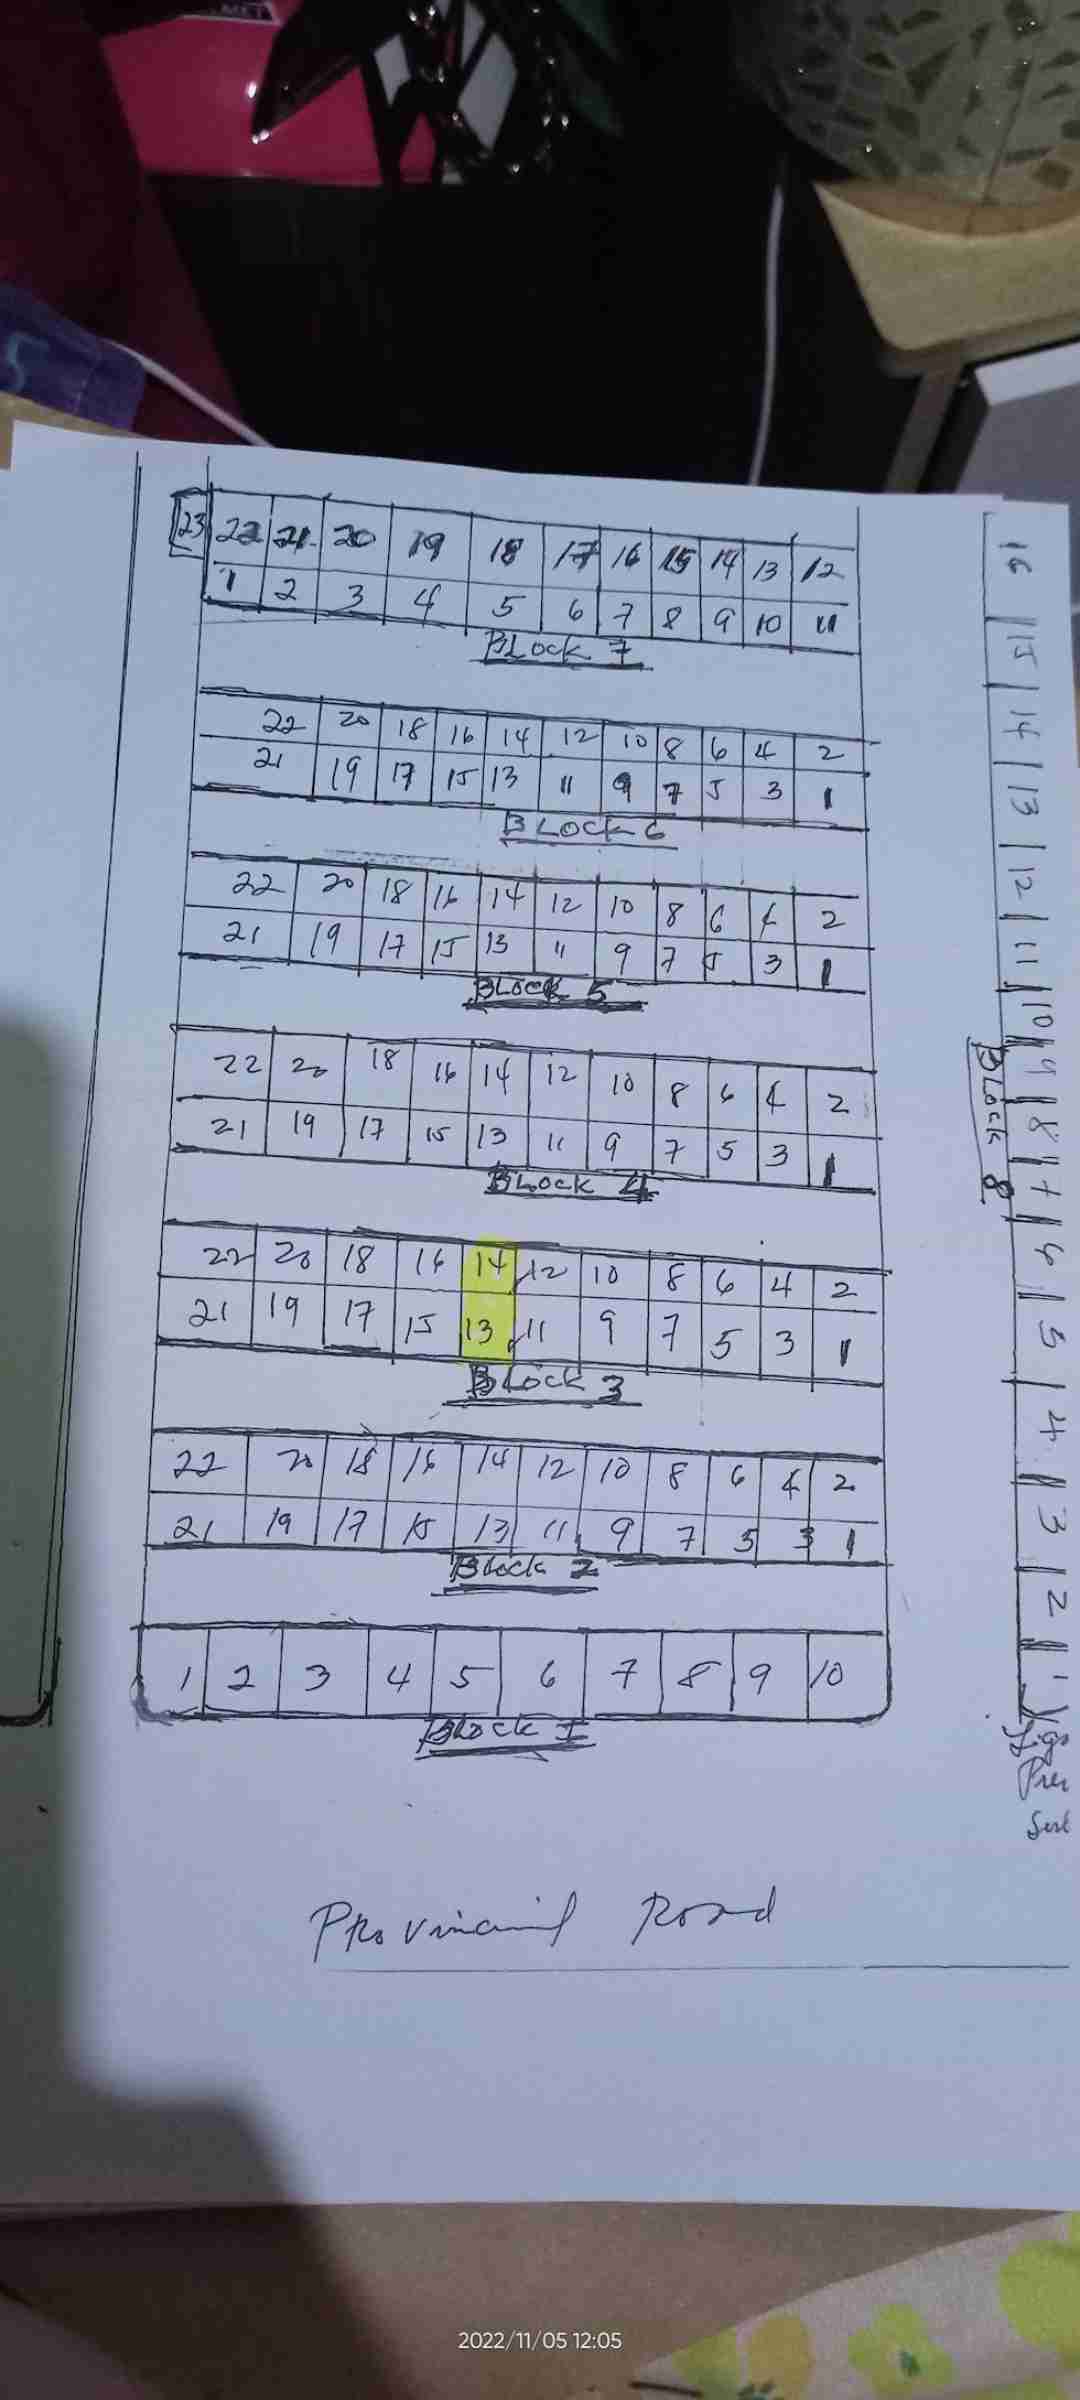 MET
23 22 21 20 19 18 17 16 15 14 13 12
1 2 3 4 5 6 7 8 9 10 11
BLOCK 7
22 20 18 16 14 12 10 8 6 4 2
21 19 17 15 13 11 9 7 5 3 1
BLOCK 6
22 20 18 16 14 12 10 8 6 4 2
21 19 17 15 13 11 9 7 5 3 1
BLOCK 5
22 20 18 16 14 12 10 8 6 4 2
21 19 17 15 13 11 9 7 5 3 1
BLOCK 4
22 20 18 16 14 12 10 8 6 4 2
21 19 17 15 13 11 9 7 5 3 1
BLOCK 3
22 20 18 16 14 12 10 8 6 4 2
21 19 17 15 13 11 9 7 5 3 1
Block 2
1 2 3 4 5 6 7 8 9 10
Block I
16 15 14 13 12 11 10 9 8 7 6 5 4 3 2 1
BLOCK 8
Provincial Road
2022/11/05 12:05